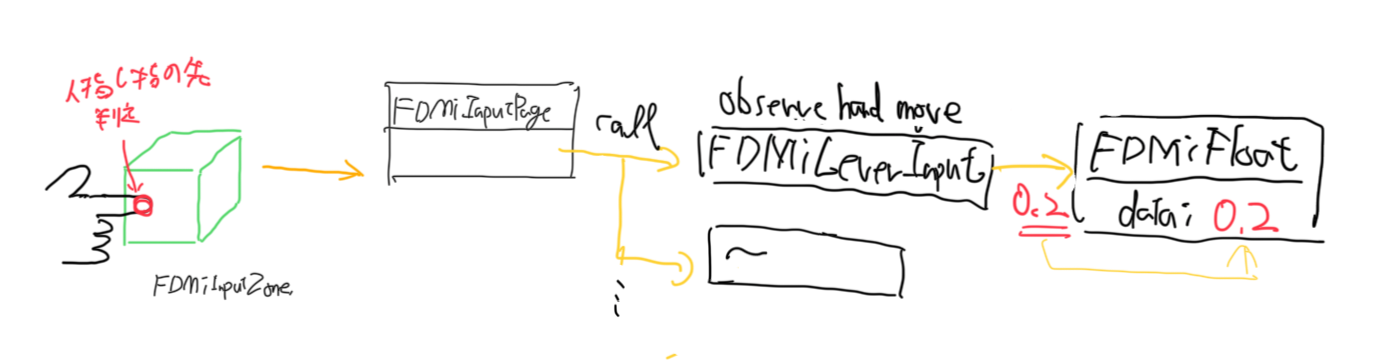 人指し指の先
判定
FDMiInputZone
FDMiInputPage
call
observe hand move
FDMiLeverInput
0.2
FDMiFloat
data: 0.2